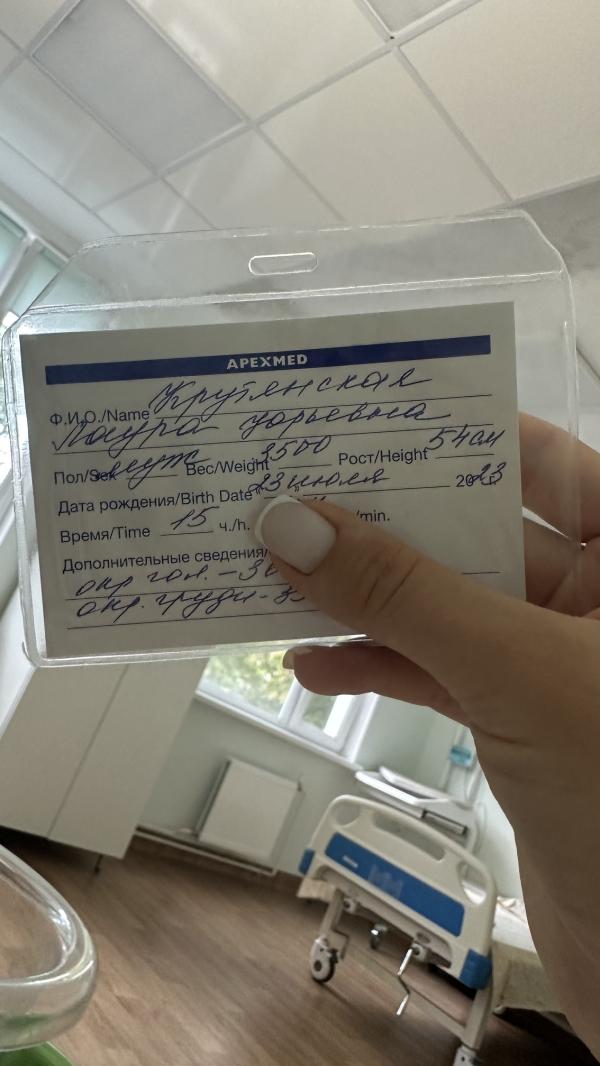 APEXMED
Ф.И.О./Name Крутянская
Лаура Юрьевна
Пол/Sex муж Вес/Weight 3500 Рост/Height 54см
Дата рождения/Birth Date "23" июля 2023
Время/Time 15 ч./h. /min.
Дополнительные сведения/
окр. гол. – 3
окр. груди – 3